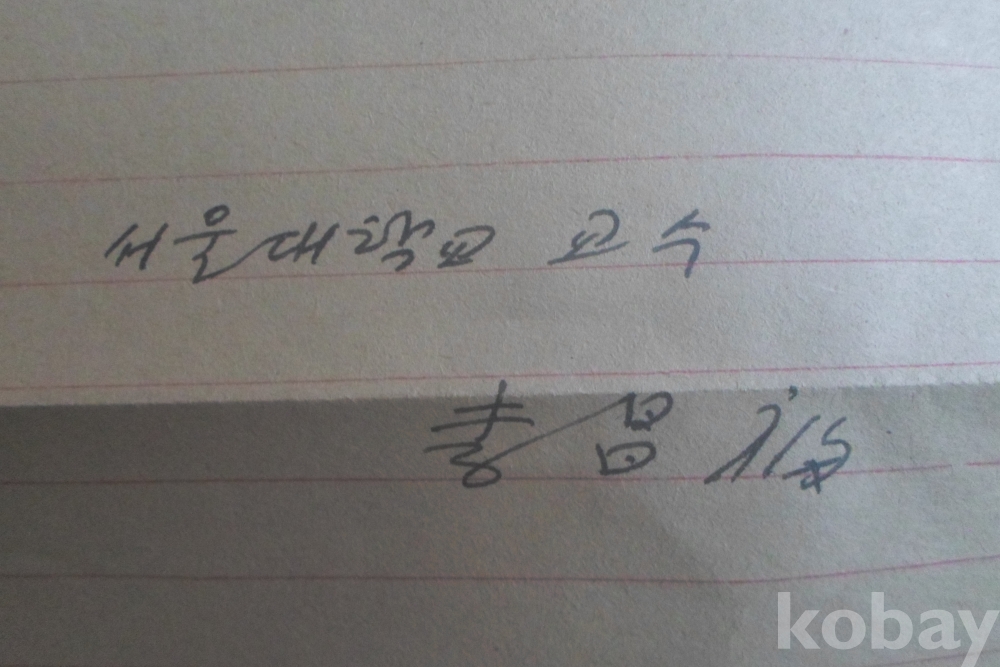 서울대학교 교수
kobay